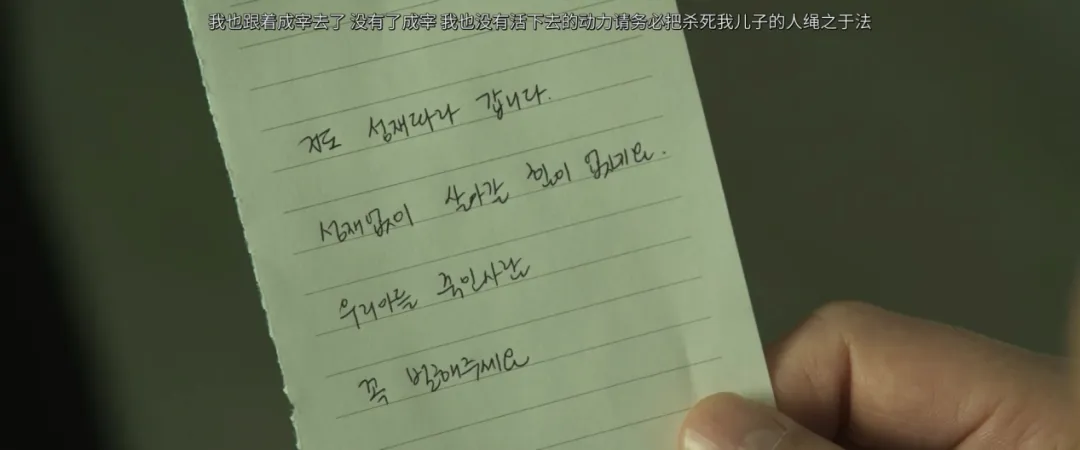 我也跟着成宰去了 没有了成宰 我也没有活下去的动力请务必把杀死我儿子的人绳之于法
저도 성재따라 갑니다.
성재없이 살아갈 힘이 없지요.
우리아들 죽인사람
꼭 벌해주세요